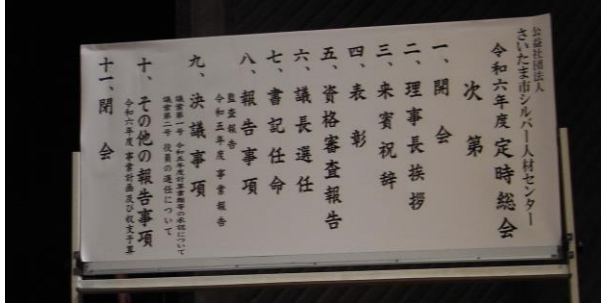 公益社団法人
さいたま市シルバー人材センター
令和六年度 定時総会
次第
一、開会
二、理事長挨拶
三、来賓祝辞
四、表彰
五、資格審査報告
六、議長選任
七、書記任命
八、報告事項
監査報告
令和五年度 事業報告
九、決議事項
議案第一号 令和五年度計算書類等の承認について
議案第二号 役員の選任について
十、その他の報告事項
令和六年度 事業計画及び収支予算
十一、閉会